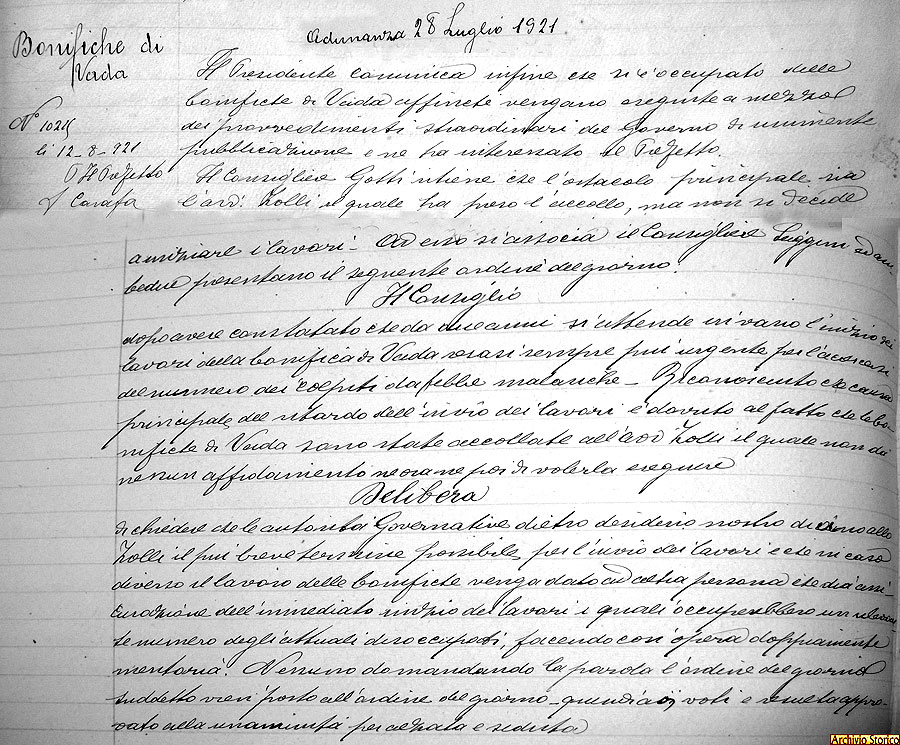 Adunanza 28 Luglio 1921
Bonifiche di
Vada
N° 1025
li 12-8-921
Il Prefetto
f Carafa
Il Presidente comunica infine che si è occupato delle
bonifiche di Vada affinché vengano eseguite a mezzo
dei provvedimenti straordinari del Governo di imminente
pubblicazione e ne ha interessato il Prefetto.
Il Consigliere Gotti ritiene che l'ostacolo principale sia
l'avv. Zolli il quale ha preso l'accollo, ma non si decide
a iniziare i lavori - Ad esso si associa il Consigliere ed am-
bedue presentano il seguente ordine del giorno.
Il Consiglio
dopo avere constatato che da due anni si attende in vano l'inizio dei
lavori della bonifica di Vada resasi sempre più urgente per l'accrescersi
del numero dei colpiti da febbre malariche - Riconosciuto che causa
principale del ritardo dell'invio dei lavori è dovuto al fatto che le bo-
nifiche di Vada sono state accollate all'avv Zolli il quale non dà
nessun affidamento neorane poi di volerla eseguire
Delibera
di chiedere che le autorità Governative dietro desiderio nostro diano allo
Zolli il più breve termine possibile per l'invio dei lavori e che in caso
diverso il lavoro delle bonifiche venga dato ad altra persona che dia assi-
curazione dell'immediato inizio dei lavori i quali occuperebbero un rilevan-
te numero degli attuali disoccupati, facendo così opera doppiamente
mentaria. Nessuno domandando la parola l'ordine del giorno
suddetto vien posto all'ordine del giorno - quindi ai voti e resulta appro-
vato alla unanimità per alzata e seduta
Archivio Storico